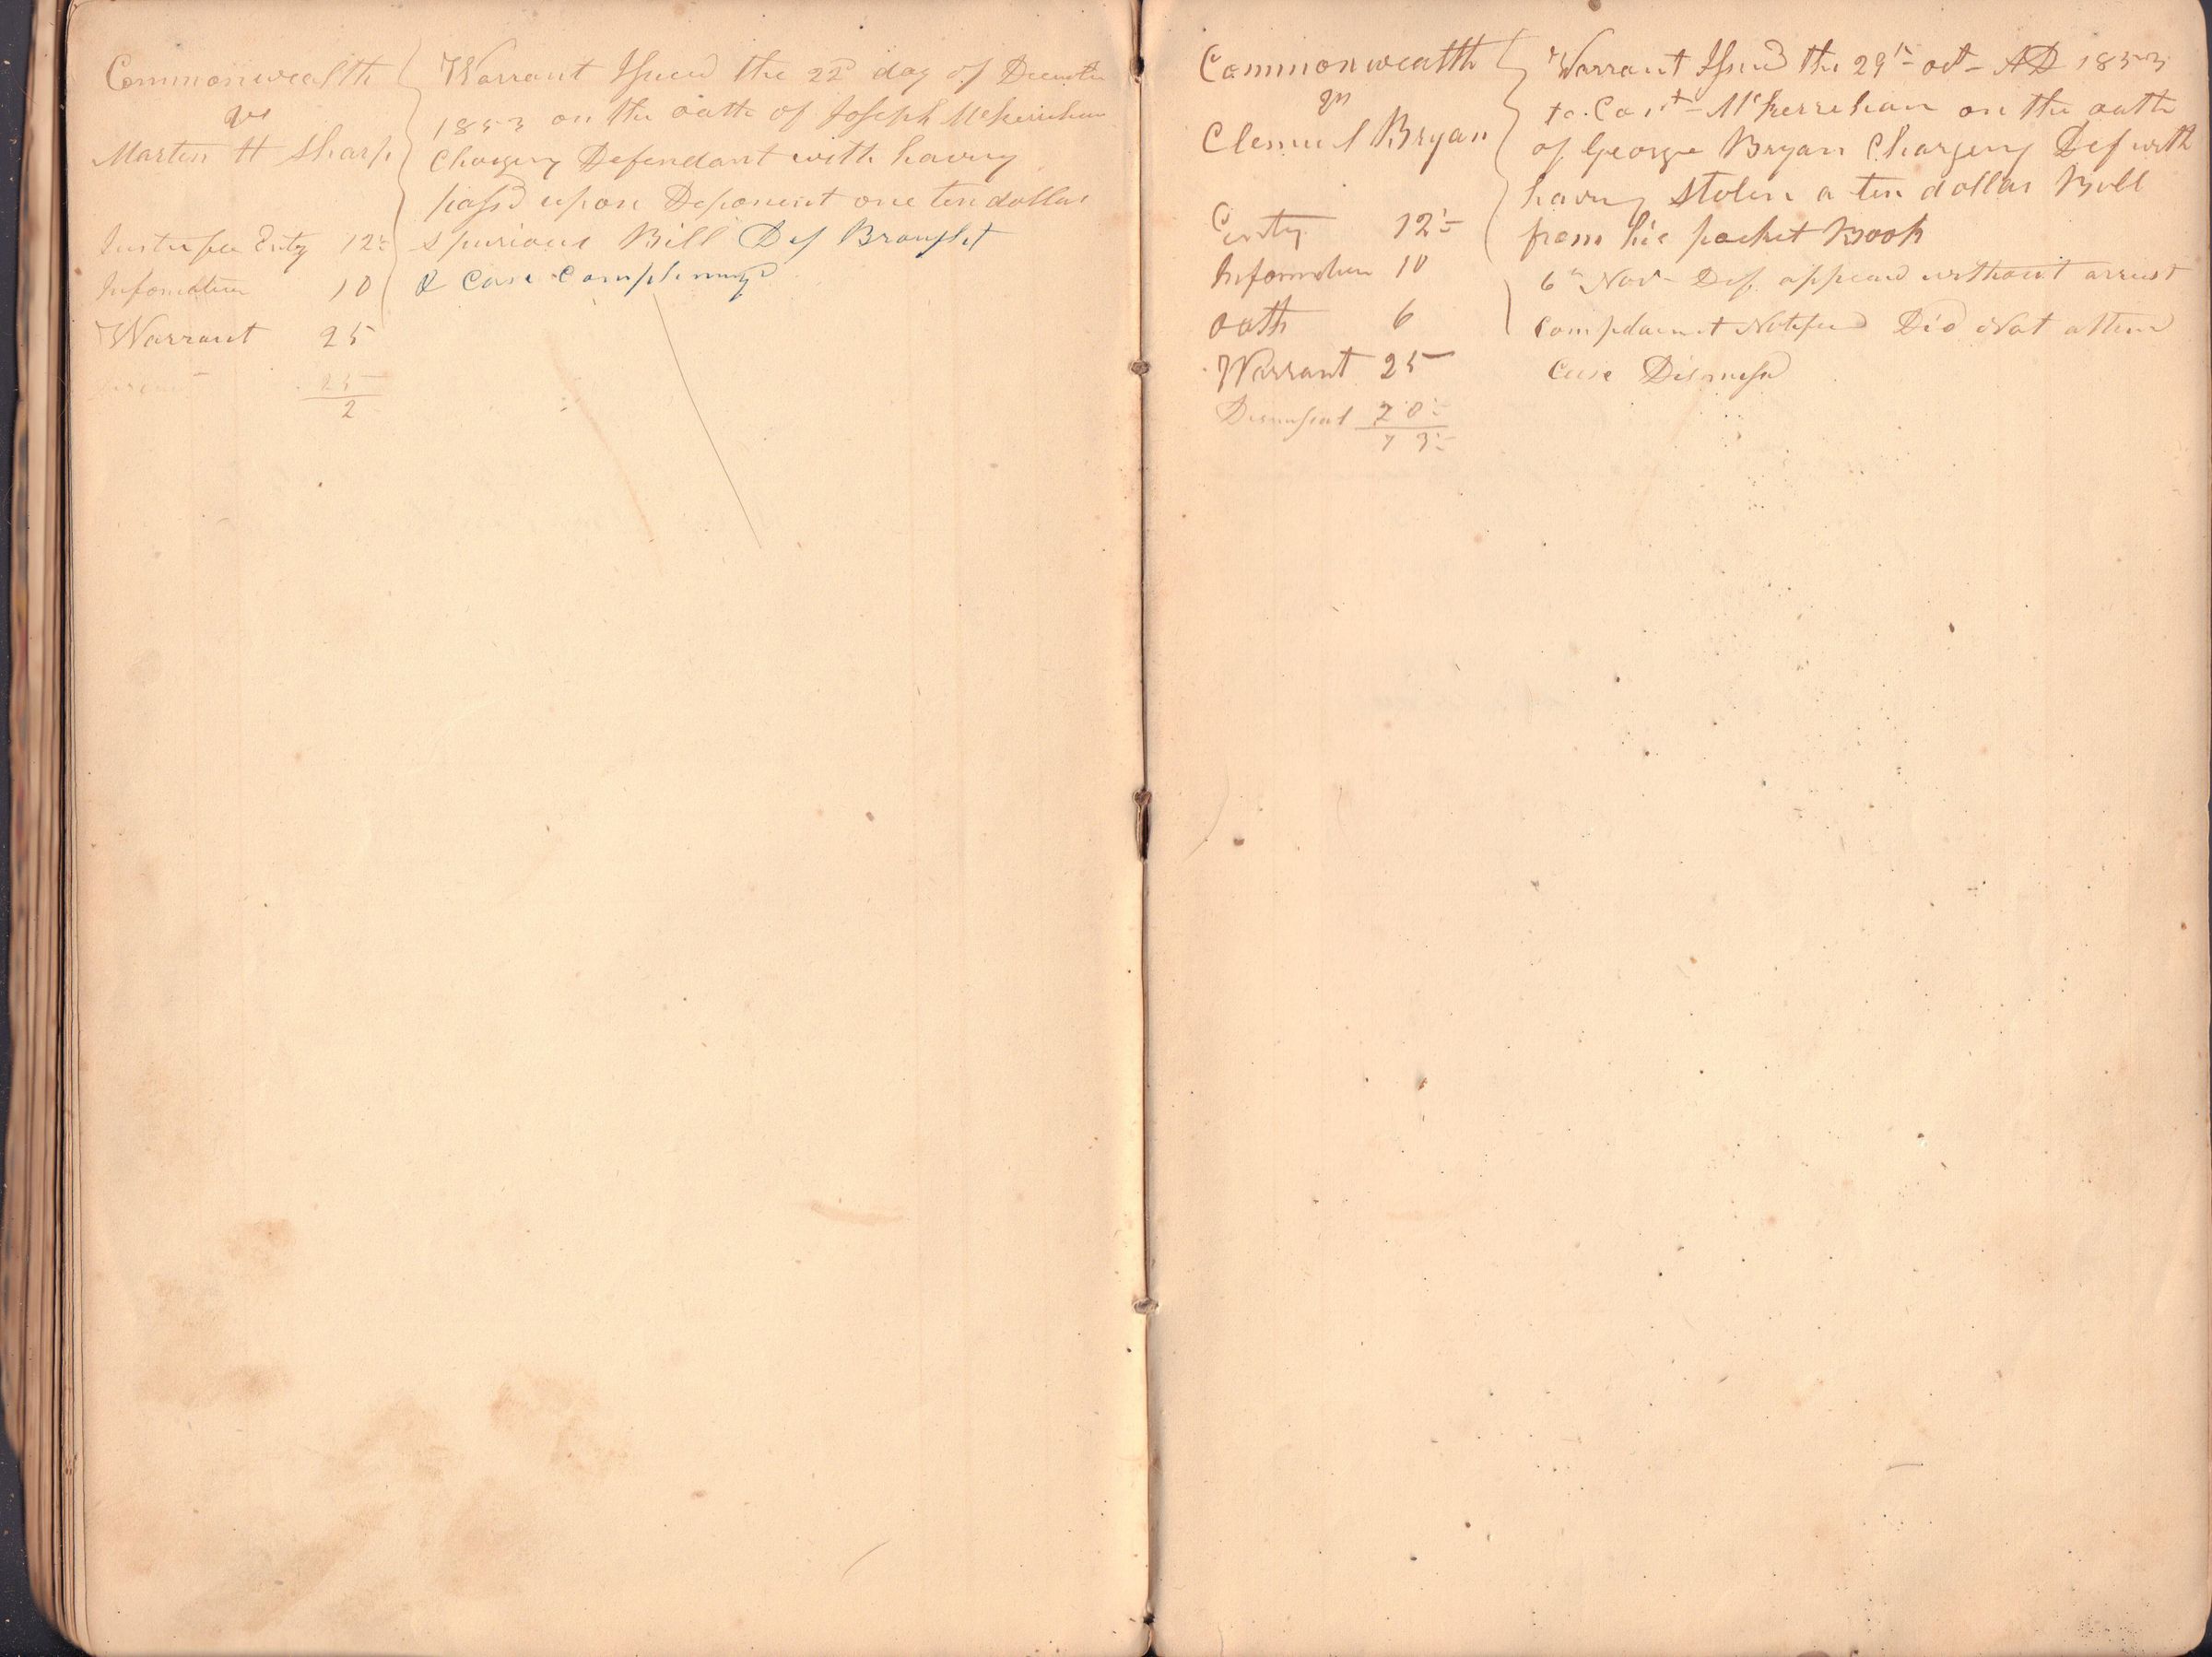 Commonwealth
vs
Martin H Sharp
Warrant Issued the 22d day of December
1853 on the oath of Joseph McKerrihan
Charging Defendant with having
passd upon Deponent one ten dollar
spurious Bill Def Brought
& Case
Entry 12½
Information 10
Warrant 25
25
2
Commonwealth
vs
Clemuel Bryan
Warrant Issued the 29th oct - AD 1853
to Const - McKerrehan on the oath
of George Bryan Charging Def with
having Stolen a ten dollar Bill
from his pocket Book
6th Nov - Def appeard without arrest
Complainant Notifid Did Not attend
Case Dismissd
Entry 12½
Information 10
oath 6
Warrant 25
Dismissal 20
7 3½